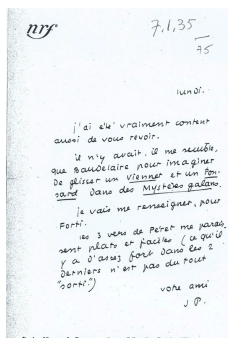 nrf
7.1.35
75
lundi.
j'ai été vraiment content
aussi de vous revoir.
il n'y avait, il me semble,
que Baudelaire pour imaginer
de glisser un Viennet et un Pon-
sard dans des Mystères galans.
je vais me renseigner, pour
Forti.
les 3 vers de Péret me parais-
sent plats et faciles (ce qu'il
y a d'assez fort dans les 2
derniers n'est pas du tout
"sorti.")
votre ami
J.P.